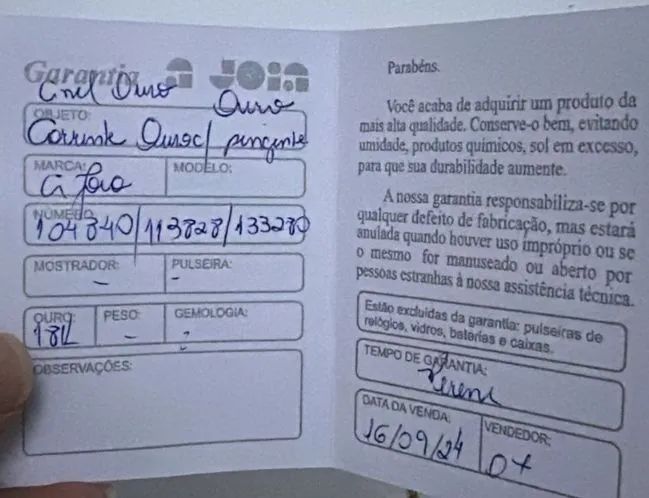 Garantia A JOIA
Anel Ouro
Ouro
OBJETO:
Corrente Ouro c/ pingente
MARCA:
A Joia
MODELO:
NÚMERO
104840/113828/133280
MOSTRADOR:
-
PULSEIRA:
-
OURO:
18k
PESO:
-
GEMOLOGIA:
-
OBSERVAÇÕES:
Parabéns.
Você acaba de adquirir um produto da
mais alta qualidade. Conserve-o bem, evitando
umidade, produtos químicos, sol em excesso,
para que sua durabilidade aumente.
A nossa garantia responsabiliza-se por
qualquer defeito de fabricação, mas estará
anulada quando houver uso impróprio ou se
o mesmo for manuseado ou aberto por
pessoas estranhas à nossa assistência técnica.
Estão excluídas da garantia: pulseiras de
relógios, vidros, baterias e caixas.
TEMPO DE GARANTIA:
DATA DA VENDA:
16/09/24
VENDEDOR: